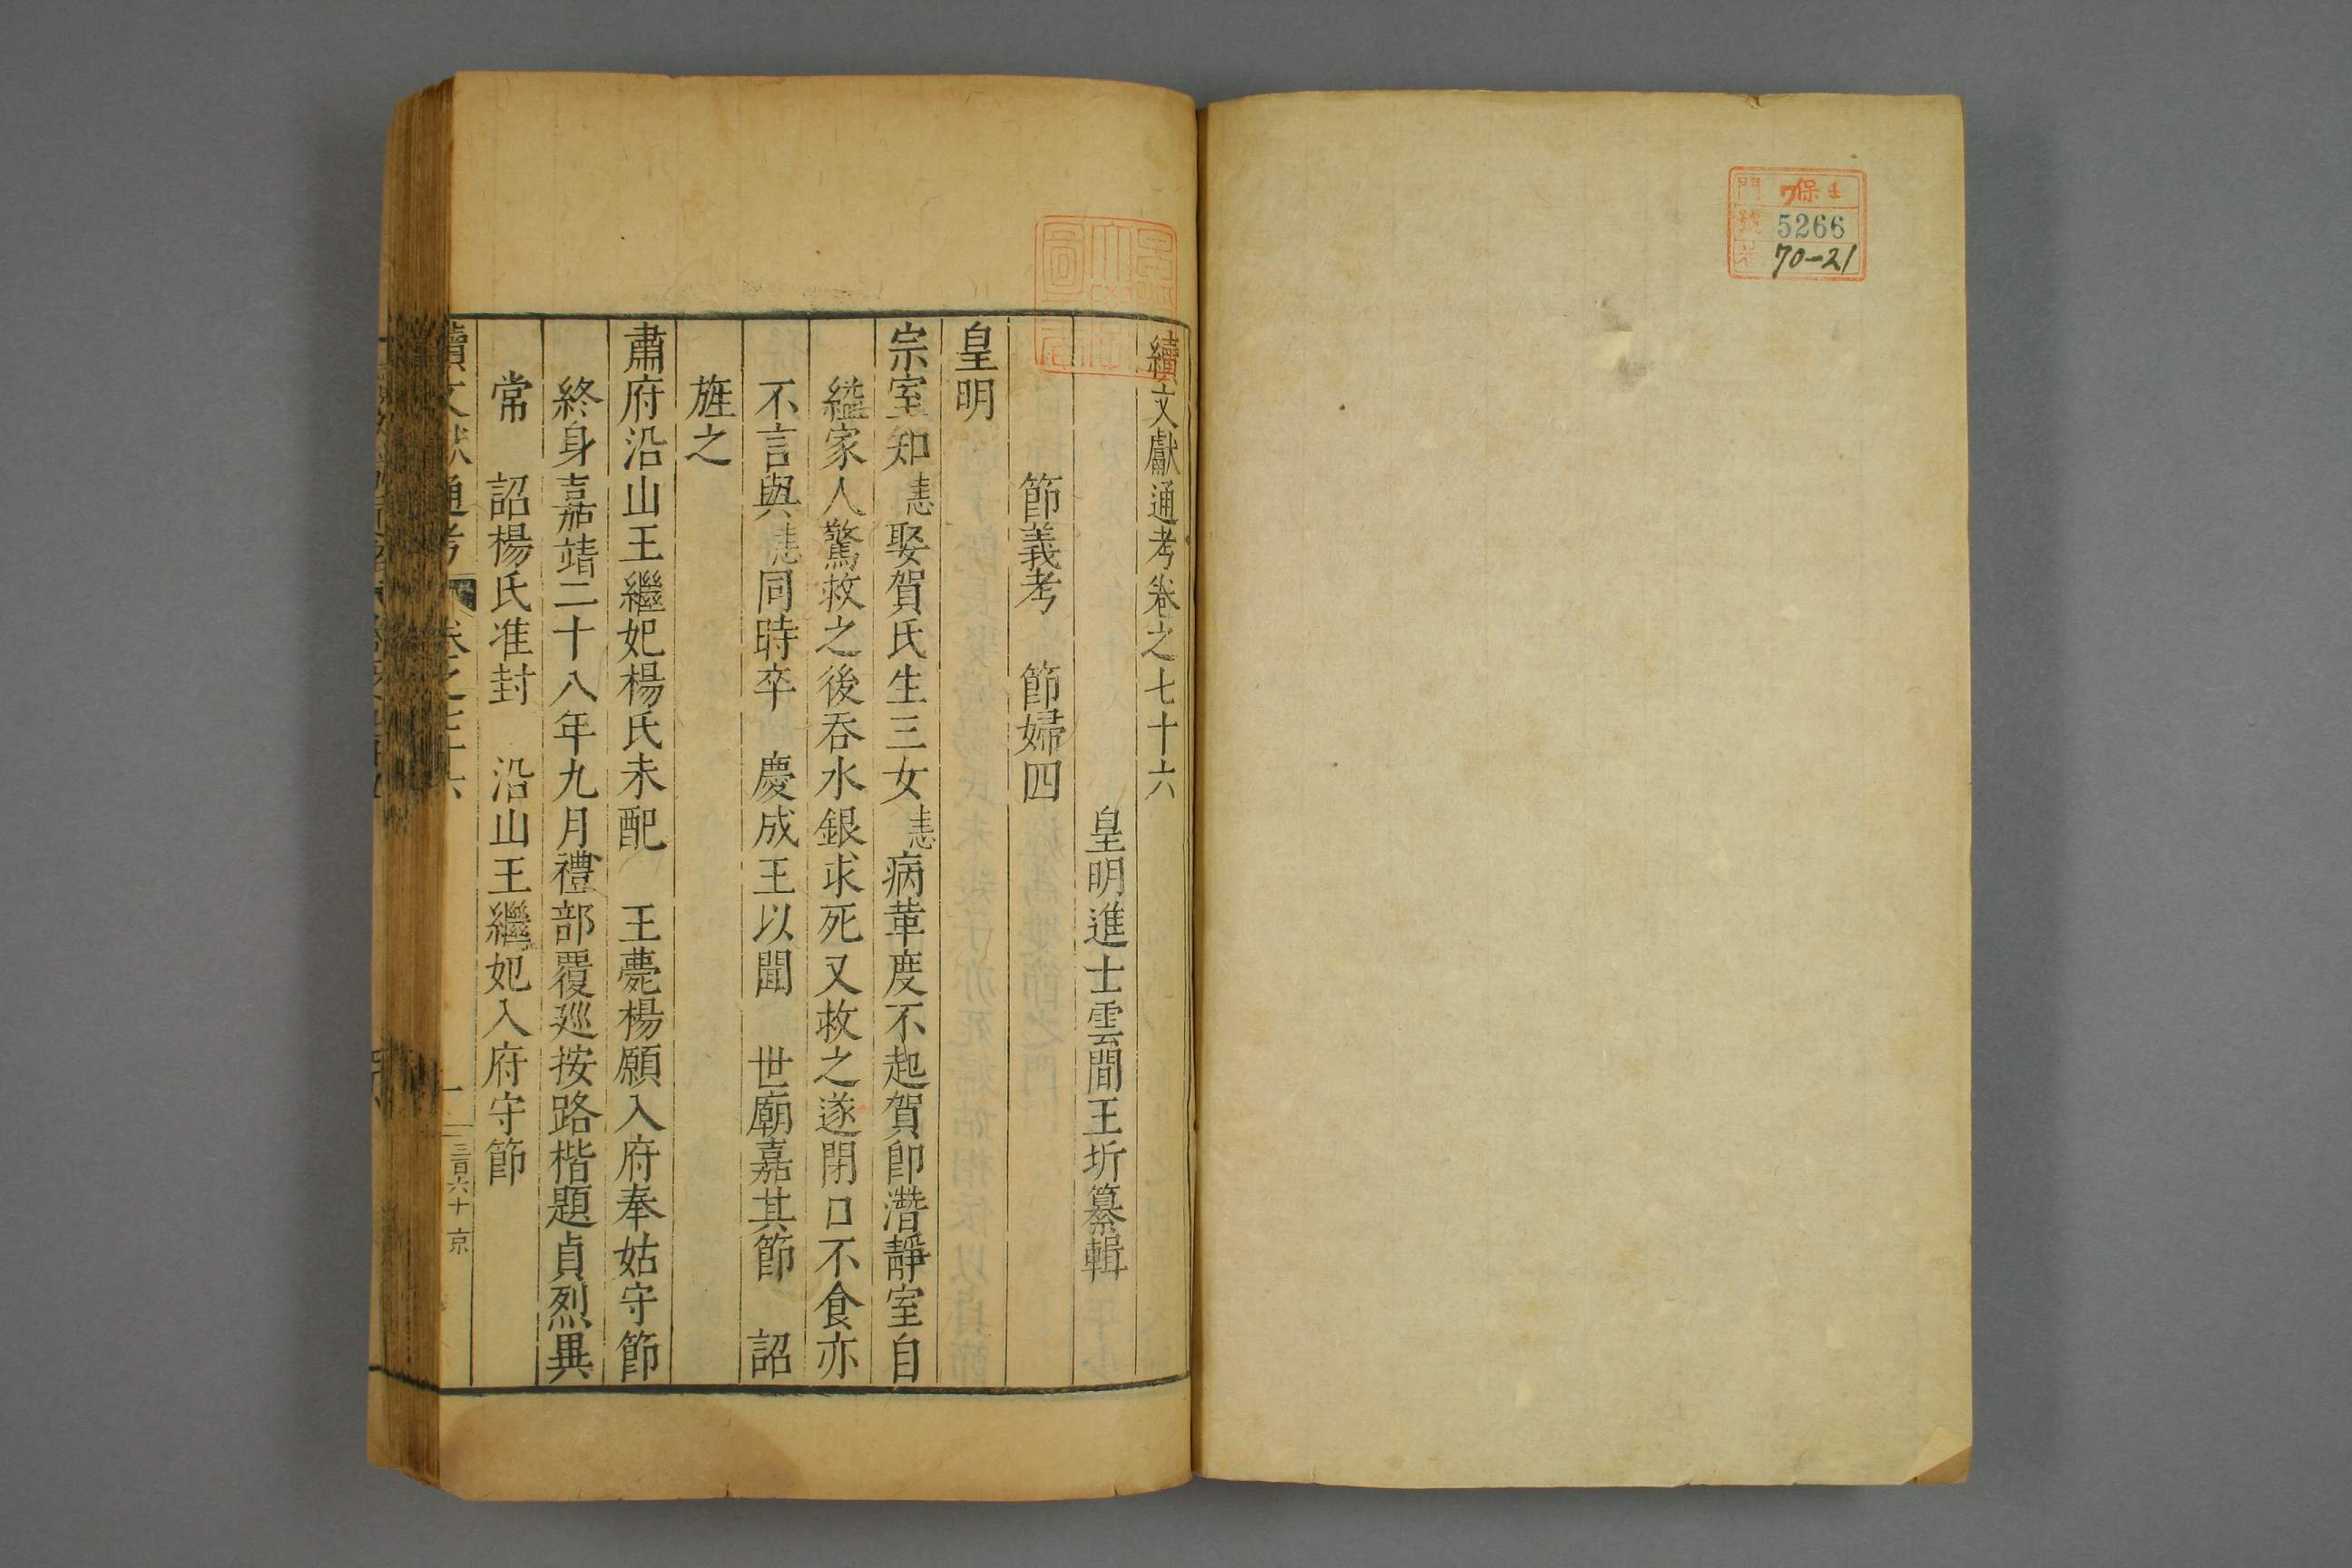 門 保
號 5266
70-21
續文獻通考卷之七十六
皇明進士雲間王圻纂輯
節義考　節婦四
皇明
宗室知𤏳娶賀氏生三女𤏳病革度不起賀即潛靜室自
縊家人驚救之後吞水銀求死又救之遂閉口不食亦
不言與𤏳同時卒　慶成王以聞　世廟嘉其節　詔
旌之
肅府沿山王繼妃楊氏未配　王薨楊願入府奉姑守節
終身嘉靖二十八年九月禮部覆廵按路楷題貞烈異
常　詔楊氏准封　沿山王繼妃入府守節
續文獻通考　卷之七十六　一　三百六十　京